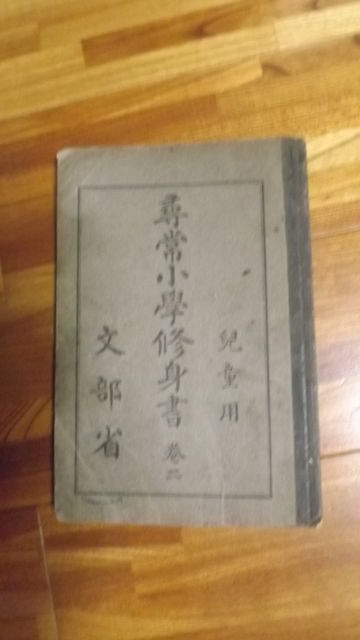 兒童用
尋常小學修身書 巻二
文部省